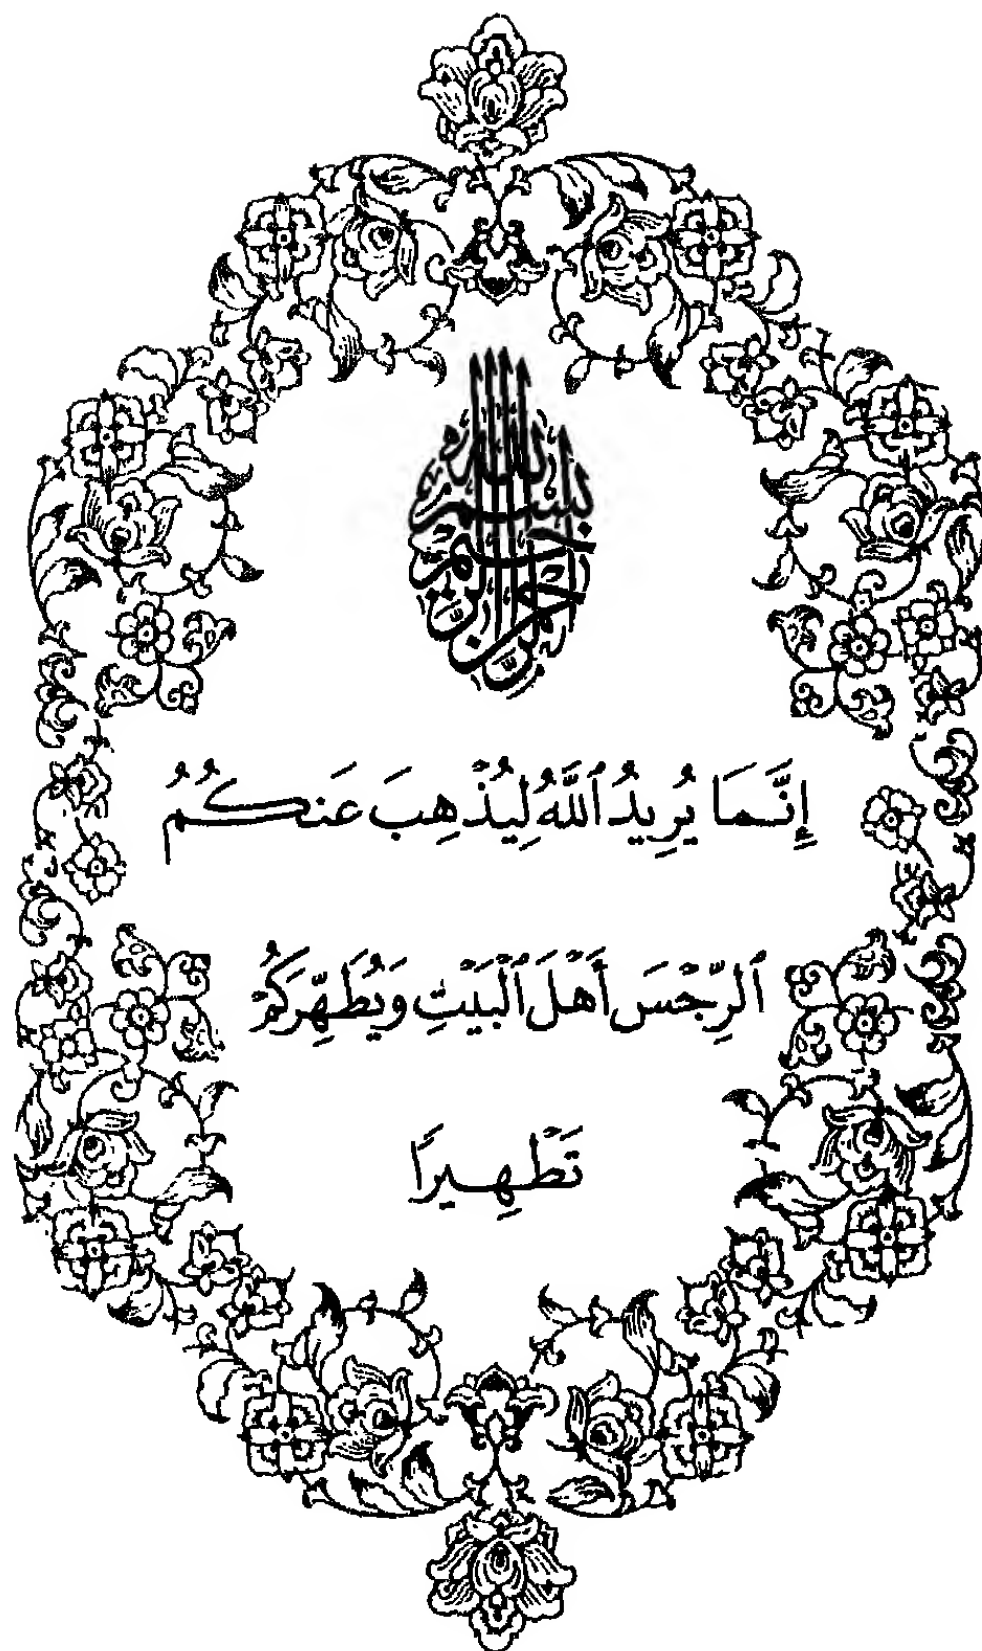 بسم الله الرحمن الرحيم
إِنَّمَا يُرِيدُ ٱللَّهُ لِيُذْهِبَ عَنكُمُ
ٱلرِّجْسَ أَهْلَ ٱلْبَيْتِ وَيُطَهِّرَكُمْ
تَطْهِيرًا